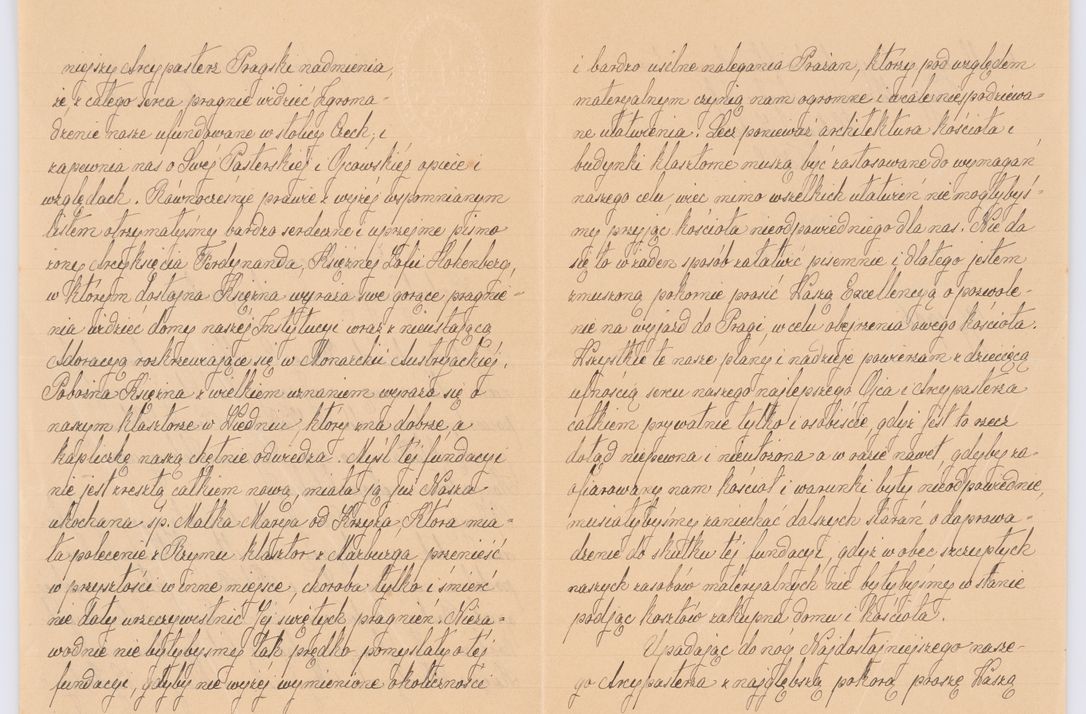 niejszy Arcypasterz Pragski nadmienia,
że z całego serca pragnie widzieć Zgroma-
dzenie nasze ufundowane w stolicy Czech, i
zapewnia nas o Swéj Pasterskiéj i Ojcowskiéj opiece i
względach. Równocześnie prawie z wyżej wspomnianym
listem otrzymałyśmy bardzo serdeczne i uprzejme pismo
żony Arcyksięcia Ferdynanda, Księżnej Zofii Hohenberg,
w którym dostojna Księżna wyraża swe gorące pragnie-
nia widzieć domy naszéj Instytucyi wraz z nieustającą
Adoracyą rozkrzewiające się w Monarchii Austryjackiéj.
Pobożna Księżna z wielkiem uznaniem wyraża się o
naszym klasztorze w Wiedniu który zna dobrze, a
kapliczkę naszą chętnie odwiedza. Myśl téj fundacyi
nie jest zresztą całkiem nową, miała ją już Nasza
ukochana śp. Matka Marya od Krzyża, która mia-
ła polecenie z Rzymu klasztor z Marburga przenieść
w przyszłości w inne miejsce, choroba tylko i śmierć
nie dały urzeczywistnić Jéj świętych pragnień. Nieza-
wodnie nie byłybyśmy tak prędko pomyślały o téj
fundacyi, gdyby nie wyżej wymienione okoliczności
i bardzo usilne nalegania Prażan, którzy pod względem
materyalnym czynią nam ogromne i wcale niespodziewa-
ne ułatwienia. Lecz ponieważ architektura kościoła i
budynki klasztorne muszą być zastosowane do wymagań
naszego celu, więc mimo wszelkich ułatwień nie mogłybyś-
my przyjąć kościoła nieodpowiedniego dla nas. Nie da
się to w żaden sposób załatwić piśmiennie i dlatego jestem
zmuszoną pokornie prosić Waszą Excellencyą o pozwole-
nie na wyjazd do Pragi w celu obejrzenia owego kościoła.
Wszystkie te nasze plany i nadzieje powierzam z dziecięcą
ufnością sercu naszego najlepszego Ojca i Arcypasterza
całkiem prywatnie tylko i osobiście, gdyż jest to rzecz
dotąd niepewna i nieutworzona a w razie nawet, gdyby za-
ofiarowany nam kościół i warunki były nieodpowiednie,
musiałybyśmy zaniechać dalszych starań o doprowa-
dzenie do skutku téj fundacyi, gdyż w obec szczupłych
naszych zasobów materyalnych nie byłybyśmy w stanie
podjąć kosztów zakupna domu i kościoła.
Upadając do nóg Najdostojniejszego nasze-
go Arcypasterza z najgłębszą pokorą proszę Waszą